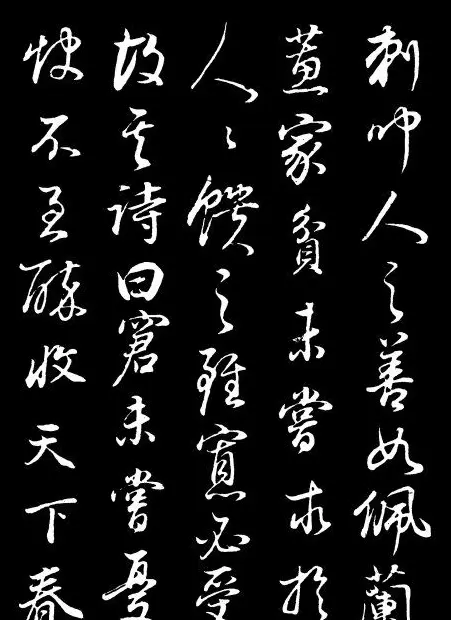 刺聞人之善如佩蘭
蕙家貧未嘗求於
人人饋之雖寡必受
故其詩曰窘未嘗憂
飲不至醉收天下春